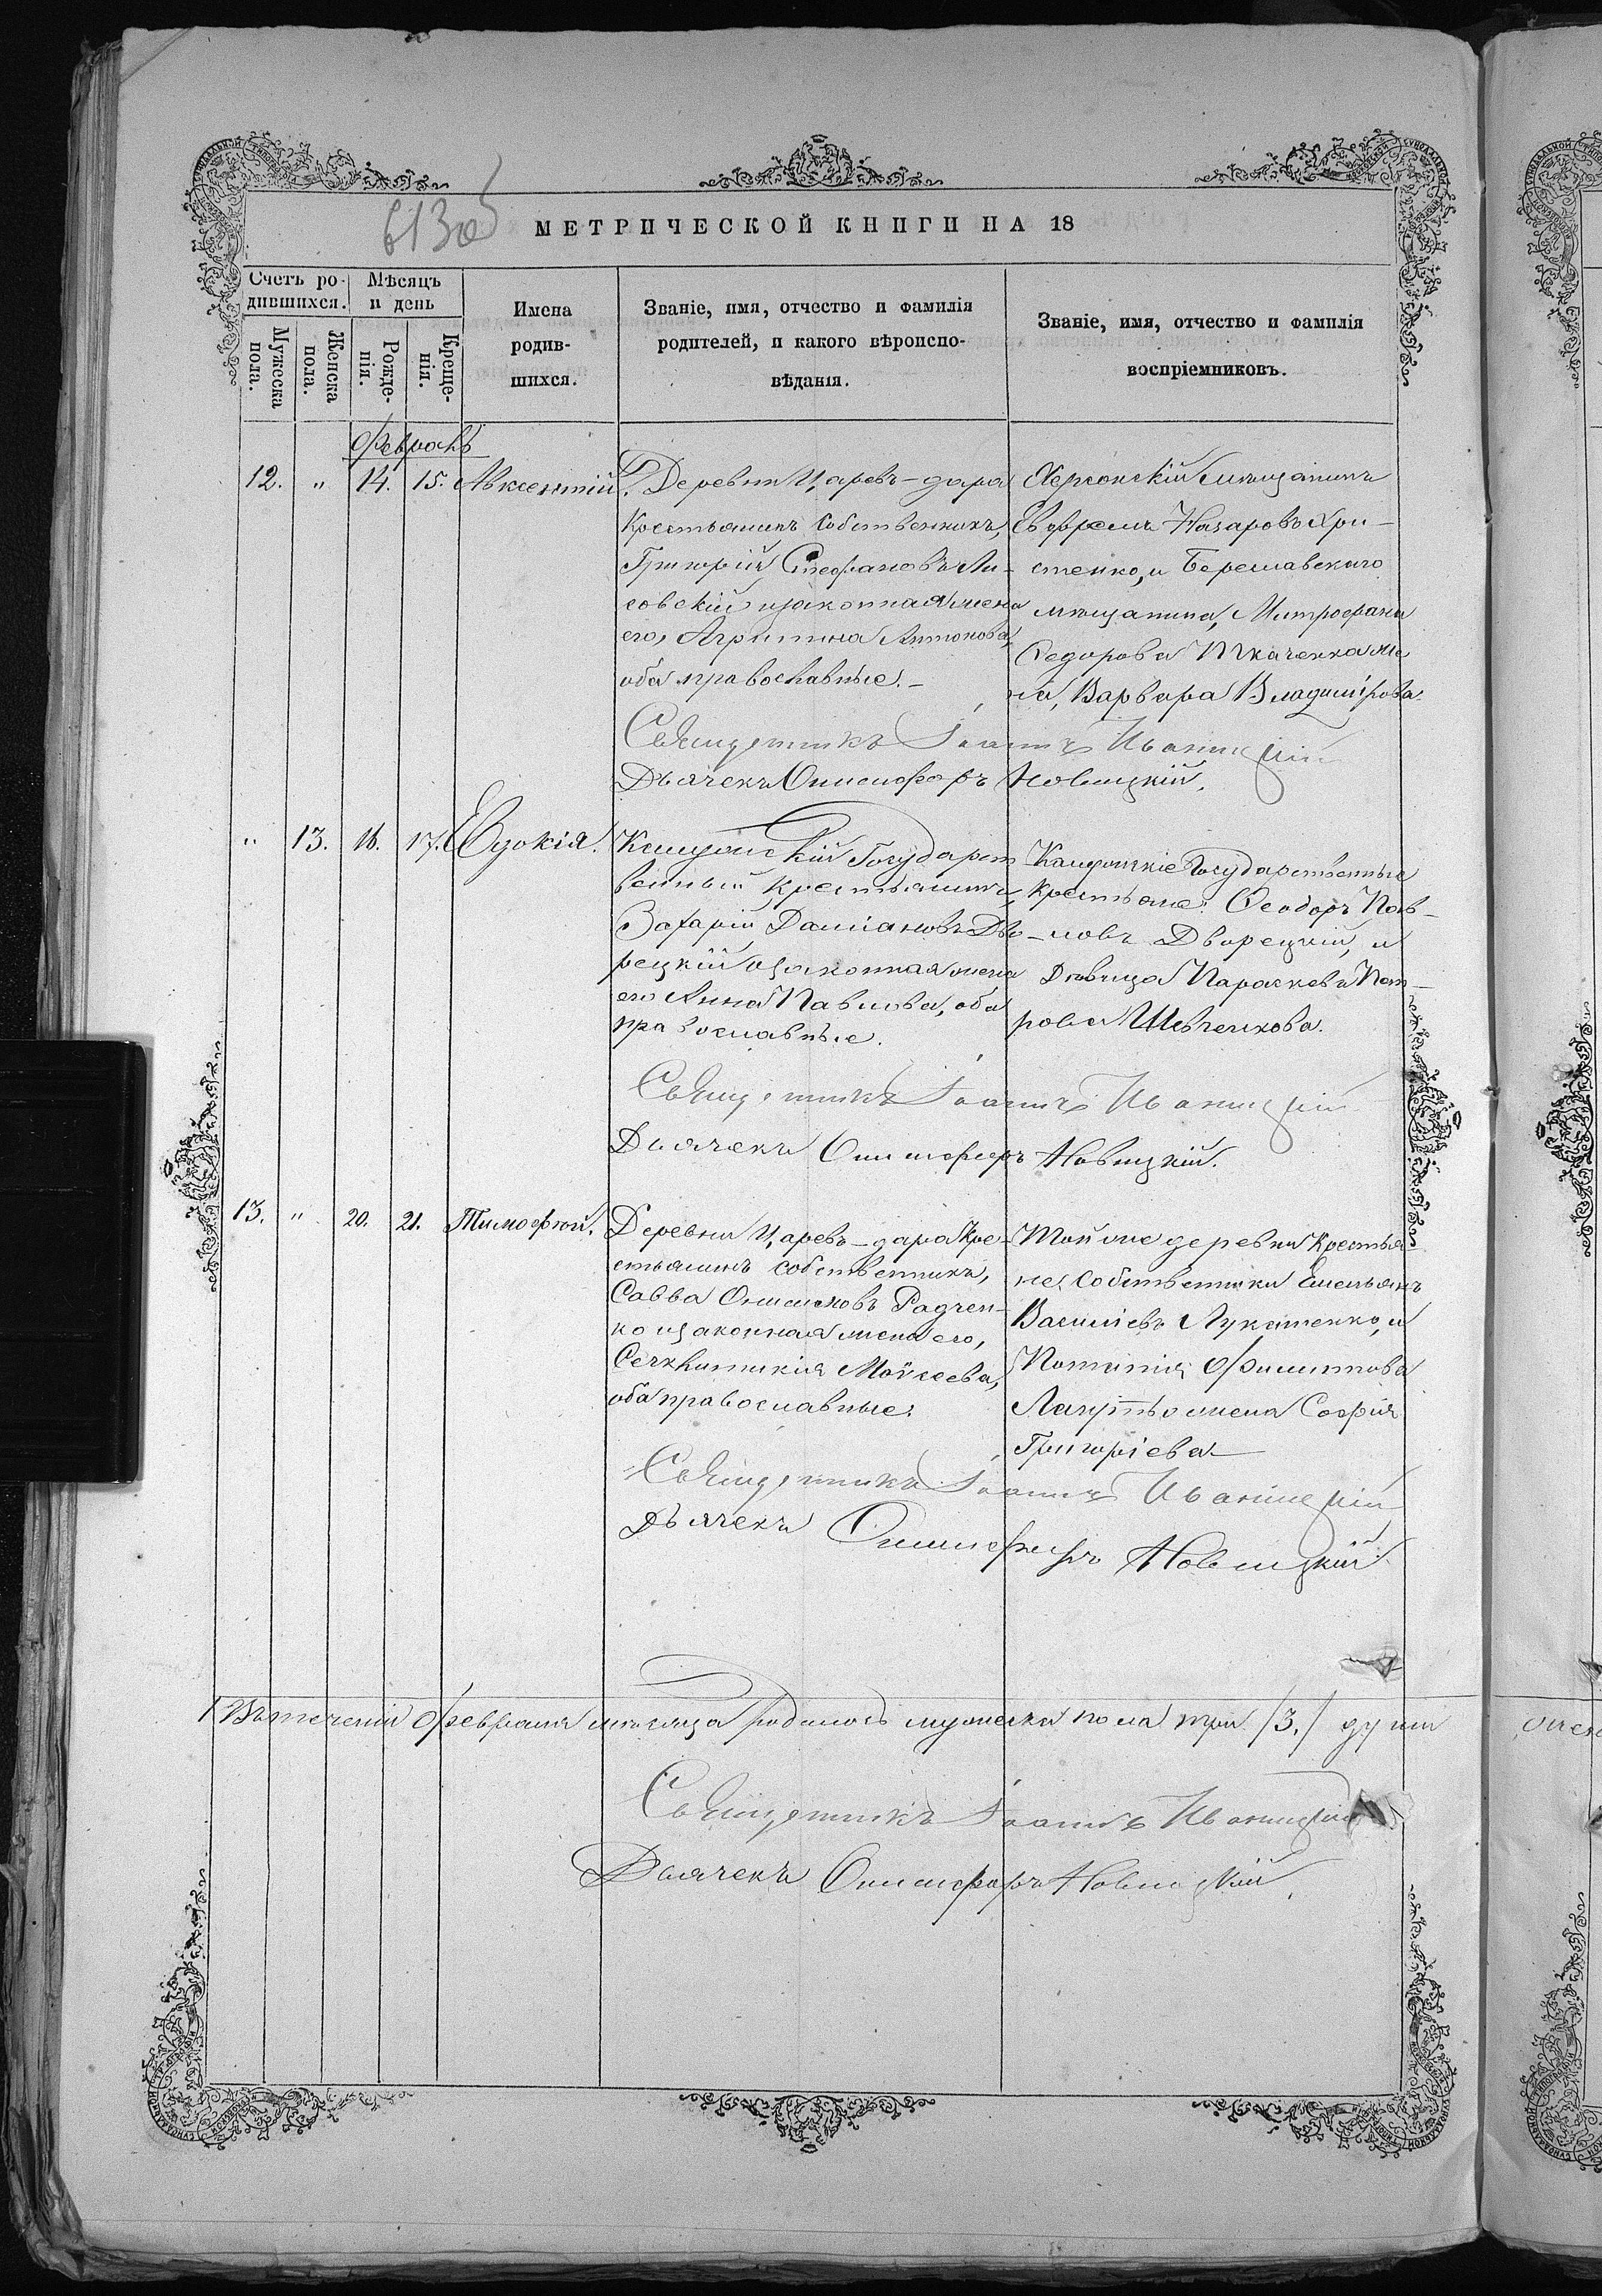 613об
МЕТРИЧЕСКОЙ КНИГИ НА 18
Счетъ ро-
дившихся.
Мѣсяцъ
и день
Мужеска
пола.
Женска
пола.
Рожде-
нія.
Креще-
нія.
Имена
родив-
шихся.
Званіе, имя, отчество и фамилія
родителей, и какого вѣроиспо-
вѣданія.
Званіе, имя, отчество и фамилія
воспріемниковъ.
Февраль
12. " 14. 15. Авксентій.
Деревни Царевъ-дара
Крестьянинъ собственникъ,
Григорій Стефановъ Ли-
совскій и законная жена
его, Агрипина Антонова,
оба православные.-
Херсонскій мѣщанинъ
Евфремъ Назаровъ Хри-
стенко, и Бериславскаго
мѣщанина, Митрофана
Федорова Ткаченка же
на, Варвара Владимірова.
Священникъ Іоаннъ Иваницкій
Дьячекъ Онисифоръ Новицкій.
" 13. 16. 17. Евдокія.
Государст
венный крестьянинъ,
Захарій Даміановъ Дво
рецкій и законная жена
его Анна Павлова, оба
православные.
Государственные
крестьяне: Феодоръ Пав-
ловъ Дворецкій, и
Дѣвица Параскева Пет-
рова Шевченкова.
Священникъ Іоаннъ Иваницкій
Дьячекъ Онисифоръ Новицкій.
13. " 20. 21. Тимофей.
Деревни Царевъ-дара Кре-
стьянинъ собственникъ,
Савва Онисимовъ Радчен-
ко и законная жена его,
Моисеева,
оба православные.
Той же деревни Крестья-
не собственники Емельянъ
Василіевъ Лукашенко, и
Филиппова
жена Софія
Григоріева
Священникъ Іоаннъ Иваницкій
Дьячекъ Онисифоръ Новицкій.
Въ теченіи Февраля мѣсяца родилось мужеска пола три /3./ души
Священникъ Іоаннъ Иваницкій
Дьячекъ Онисифоръ Новицкій.